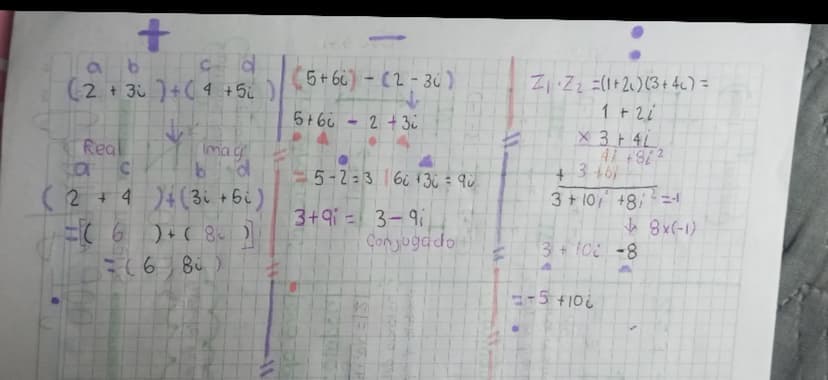 +
a b c d
(2 + 3i) + (4 + 5i)
Real Imag
a c b d
(2 + 4) + (3i + 5i)
=[( 6 ) + ( 8i )]
= (6, 8i)
−
(5+6i) - (2 - 3i)
5+6i - 2 + 3i
= 5-2=3 | 6i+3i = 9i
3+9i = 3-9i
Conjugado
:
Z₁·Z₂ =(1+2i)(3+4i)=
1 + 2i
x 3 + 4i
4i +8i²
+ 3 +6i
3 + 10i +8i² =-1
8x(-1)
3 + 10i -8
=-5 +10i